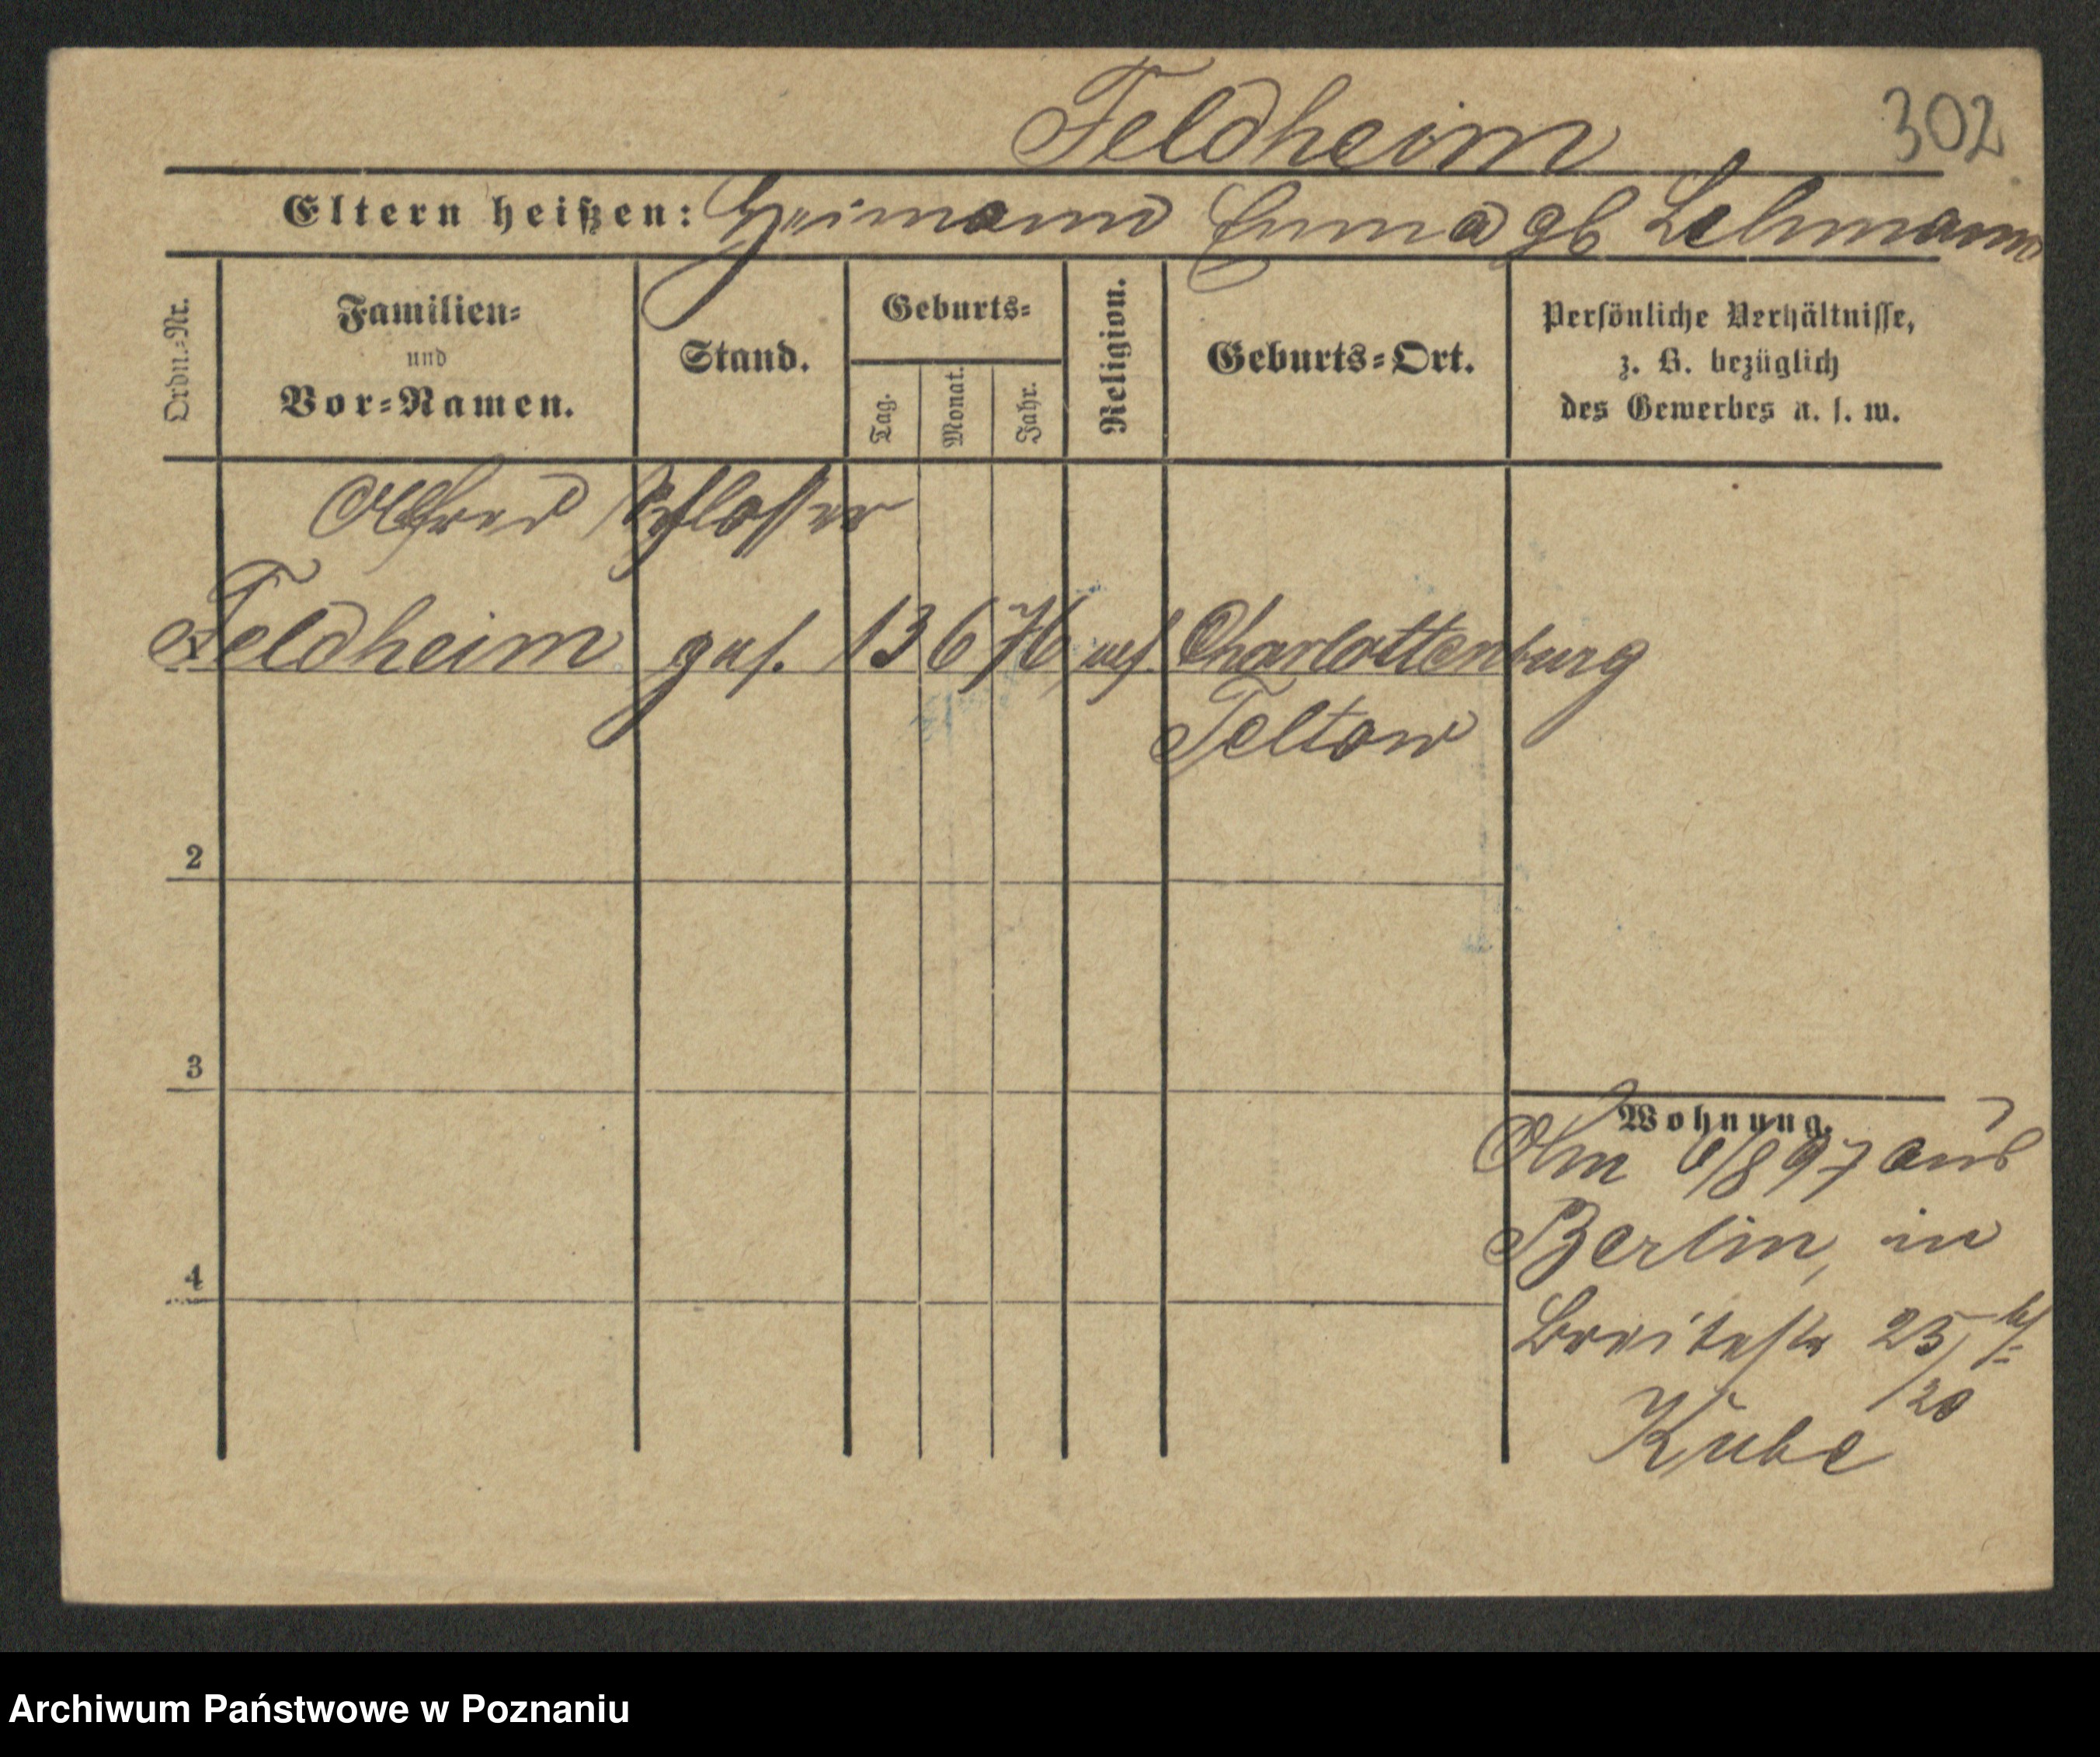 Feldheim 302
Eltern heißen: Hermann Emma gb Lehmann
Ordn.-Nr.
Familien-
und
Vor-Namen.
Stand.
Geburts-
Tag.
Monat.
Jahr.
Religion.
Geburts-Ort.
Persönliche Verhältnisse,
z. B. bezüglich
des Gewerbes u. s. w.
Alfred Schlosser
Feldheim ges. 13 6 76 Charlottenburg
Teltow
2
3
4
Wohnung.
Am 6/8 97 aus
Berlin, in
Breitestr 25
20
Kube
Archiwum Państwowe w Poznaniu